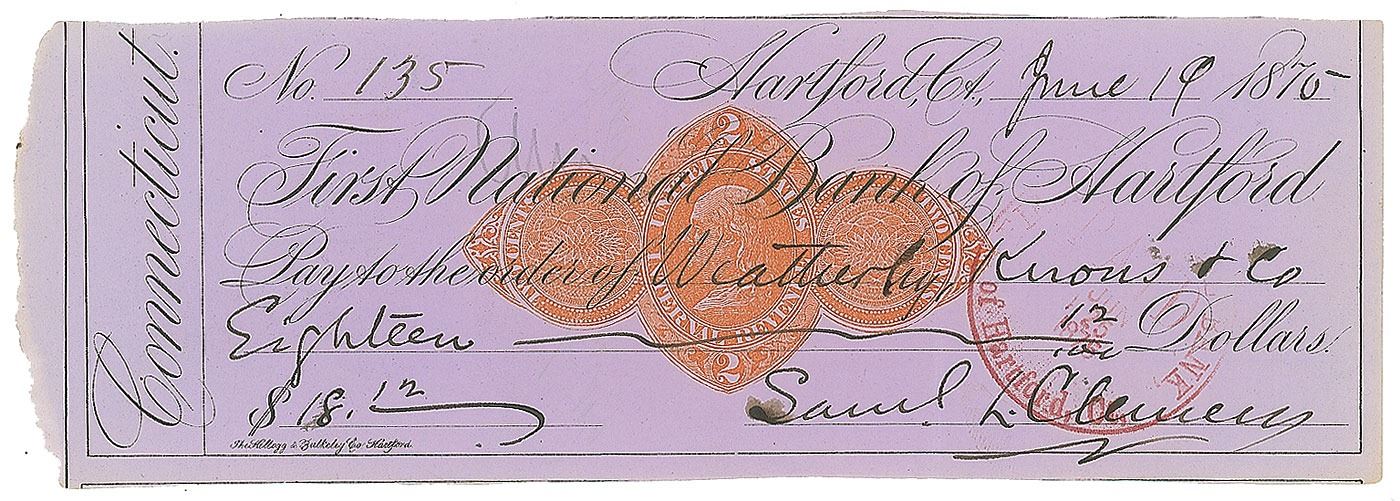 Connecticut.
No. 135 Hartford, Ct., June 19 1875
First National Bank of Hartford
Pay to the order of Weatherby, Knous & Co
Eighteen 12/100 Dollars.
$ 18.12 Saml L. Clemens
The Kellogg & Bulkeley Co. Hartford.
2
UNITED STATES
INTERNAL REVENUE
2
TWO CENTS
of Hartford, Ct.